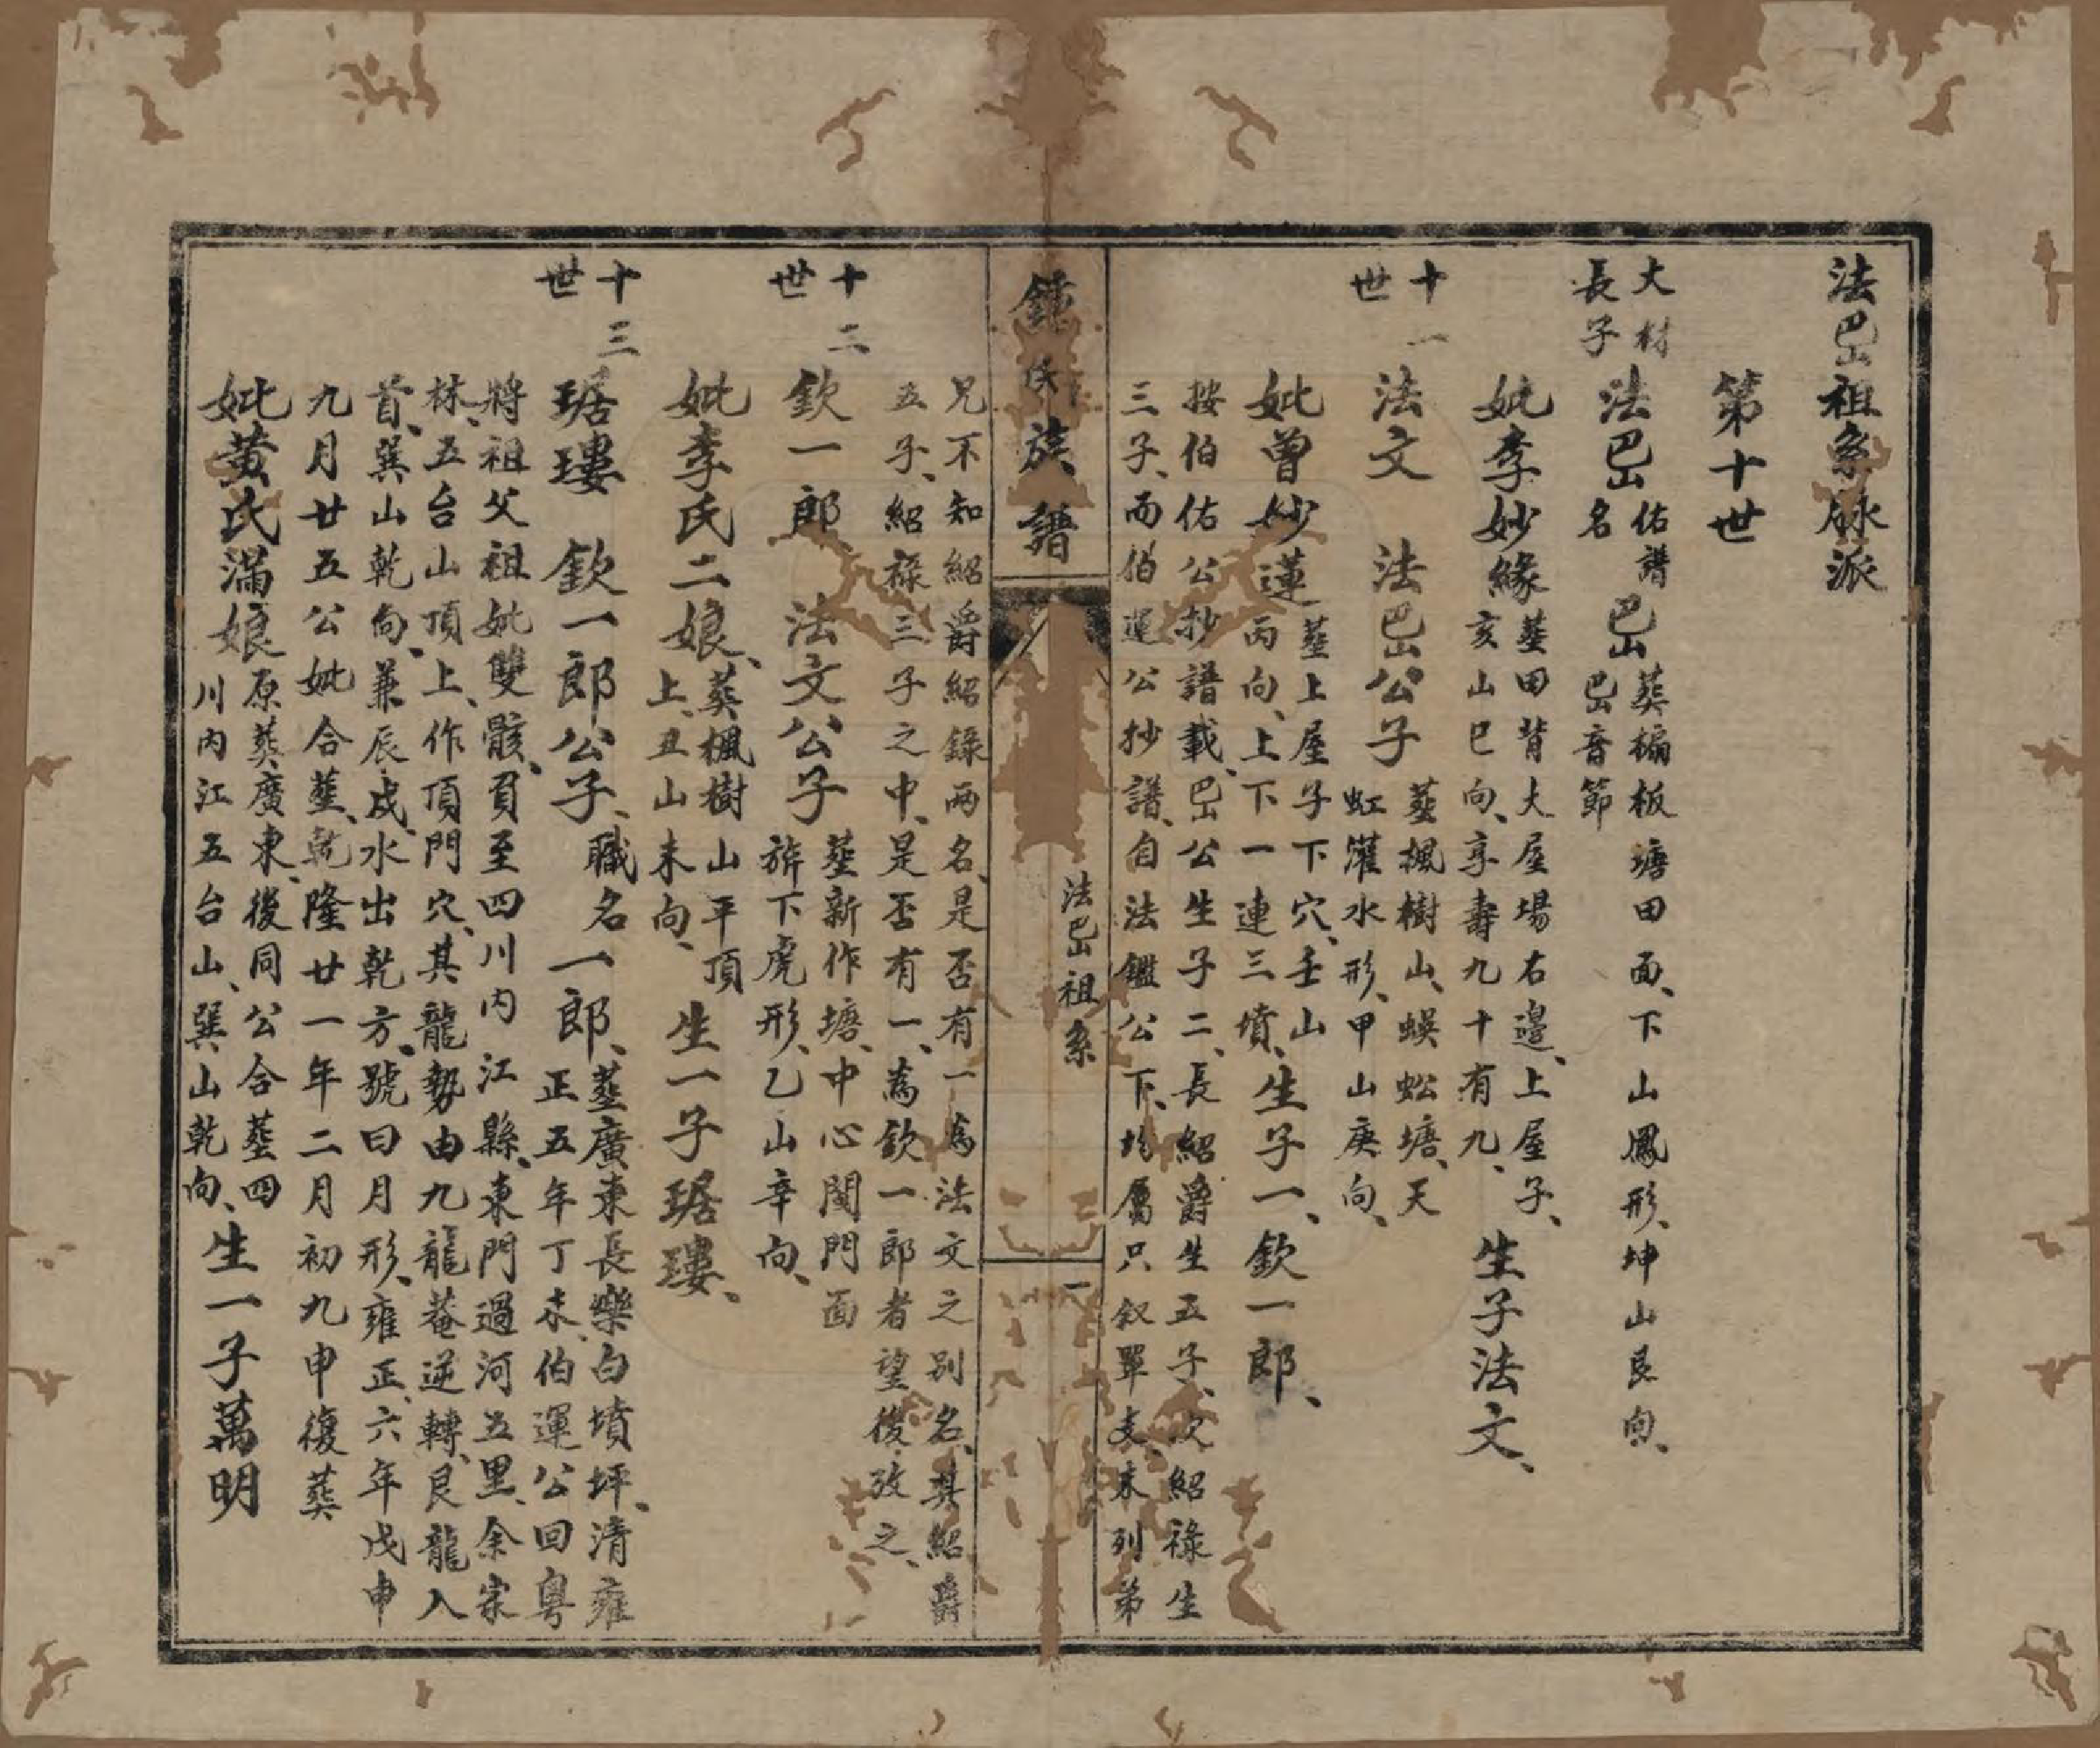 法岜祖系脉派
第十世
大材
長子
法岜
佑譜
名
岜山
葬楄板塘田面、下山鳳形、坤山艮向、
岜音節
妣李妙緣
塟田背大屋場右邊、上屋子、
亥山巳向、享壽九十有九、
生子法文、
十一
世
法文　法岜公子
塟楓樹山、蜈蚣塘、天
虹灌水形、甲山庚向、
妣曾妙蓮
塟上屋子下穴、壬山
丙向、上下一連三墳、
生子一、欽一郎、
按伯佑公抄譜載、岜公生子二、長紹爵生五子、次紹祿生
三子、而伯運公抄譜、自法鑑公下、均屬只叙單支、未列弟
鍾氏族譜
法岜祖系
一
兄不知紹爵紹錄兩名、是否有一為法文之別名、其紹爵
五子、紹祿三子之中、是否有一、為欽一郎者望後攷之、
十二
世
欽一郎　法文公子
塟新作塘、中心閔門面
旂下虎形、乙山辛向、
妣李氏二娘、
葬楓樹山平頂
上、丑山未向、
生一子琚瓔、
十三
世
琚瓔　欽一郎公子、職名一郎、
塟廣東長樂白墳坪、清雍
正五年丁未、伯運公回粤
將祖父祖妣雙骸、負至四川內江縣、東門過河五里、余家
林、五台山頂上、作頂門穴、其龍勢由九龍菴逆轉、艮龍入
首、巽山乾向、兼辰戌、水出乾方、號曰月形、雍正、六年戊申
九月廿五公妣合塟、乾隆廿一年二月初九申復葬
妣黃氏滿娘
原葬廣東、後同公合塟四
川內江五台山、巽山乾向、
生一子萬明